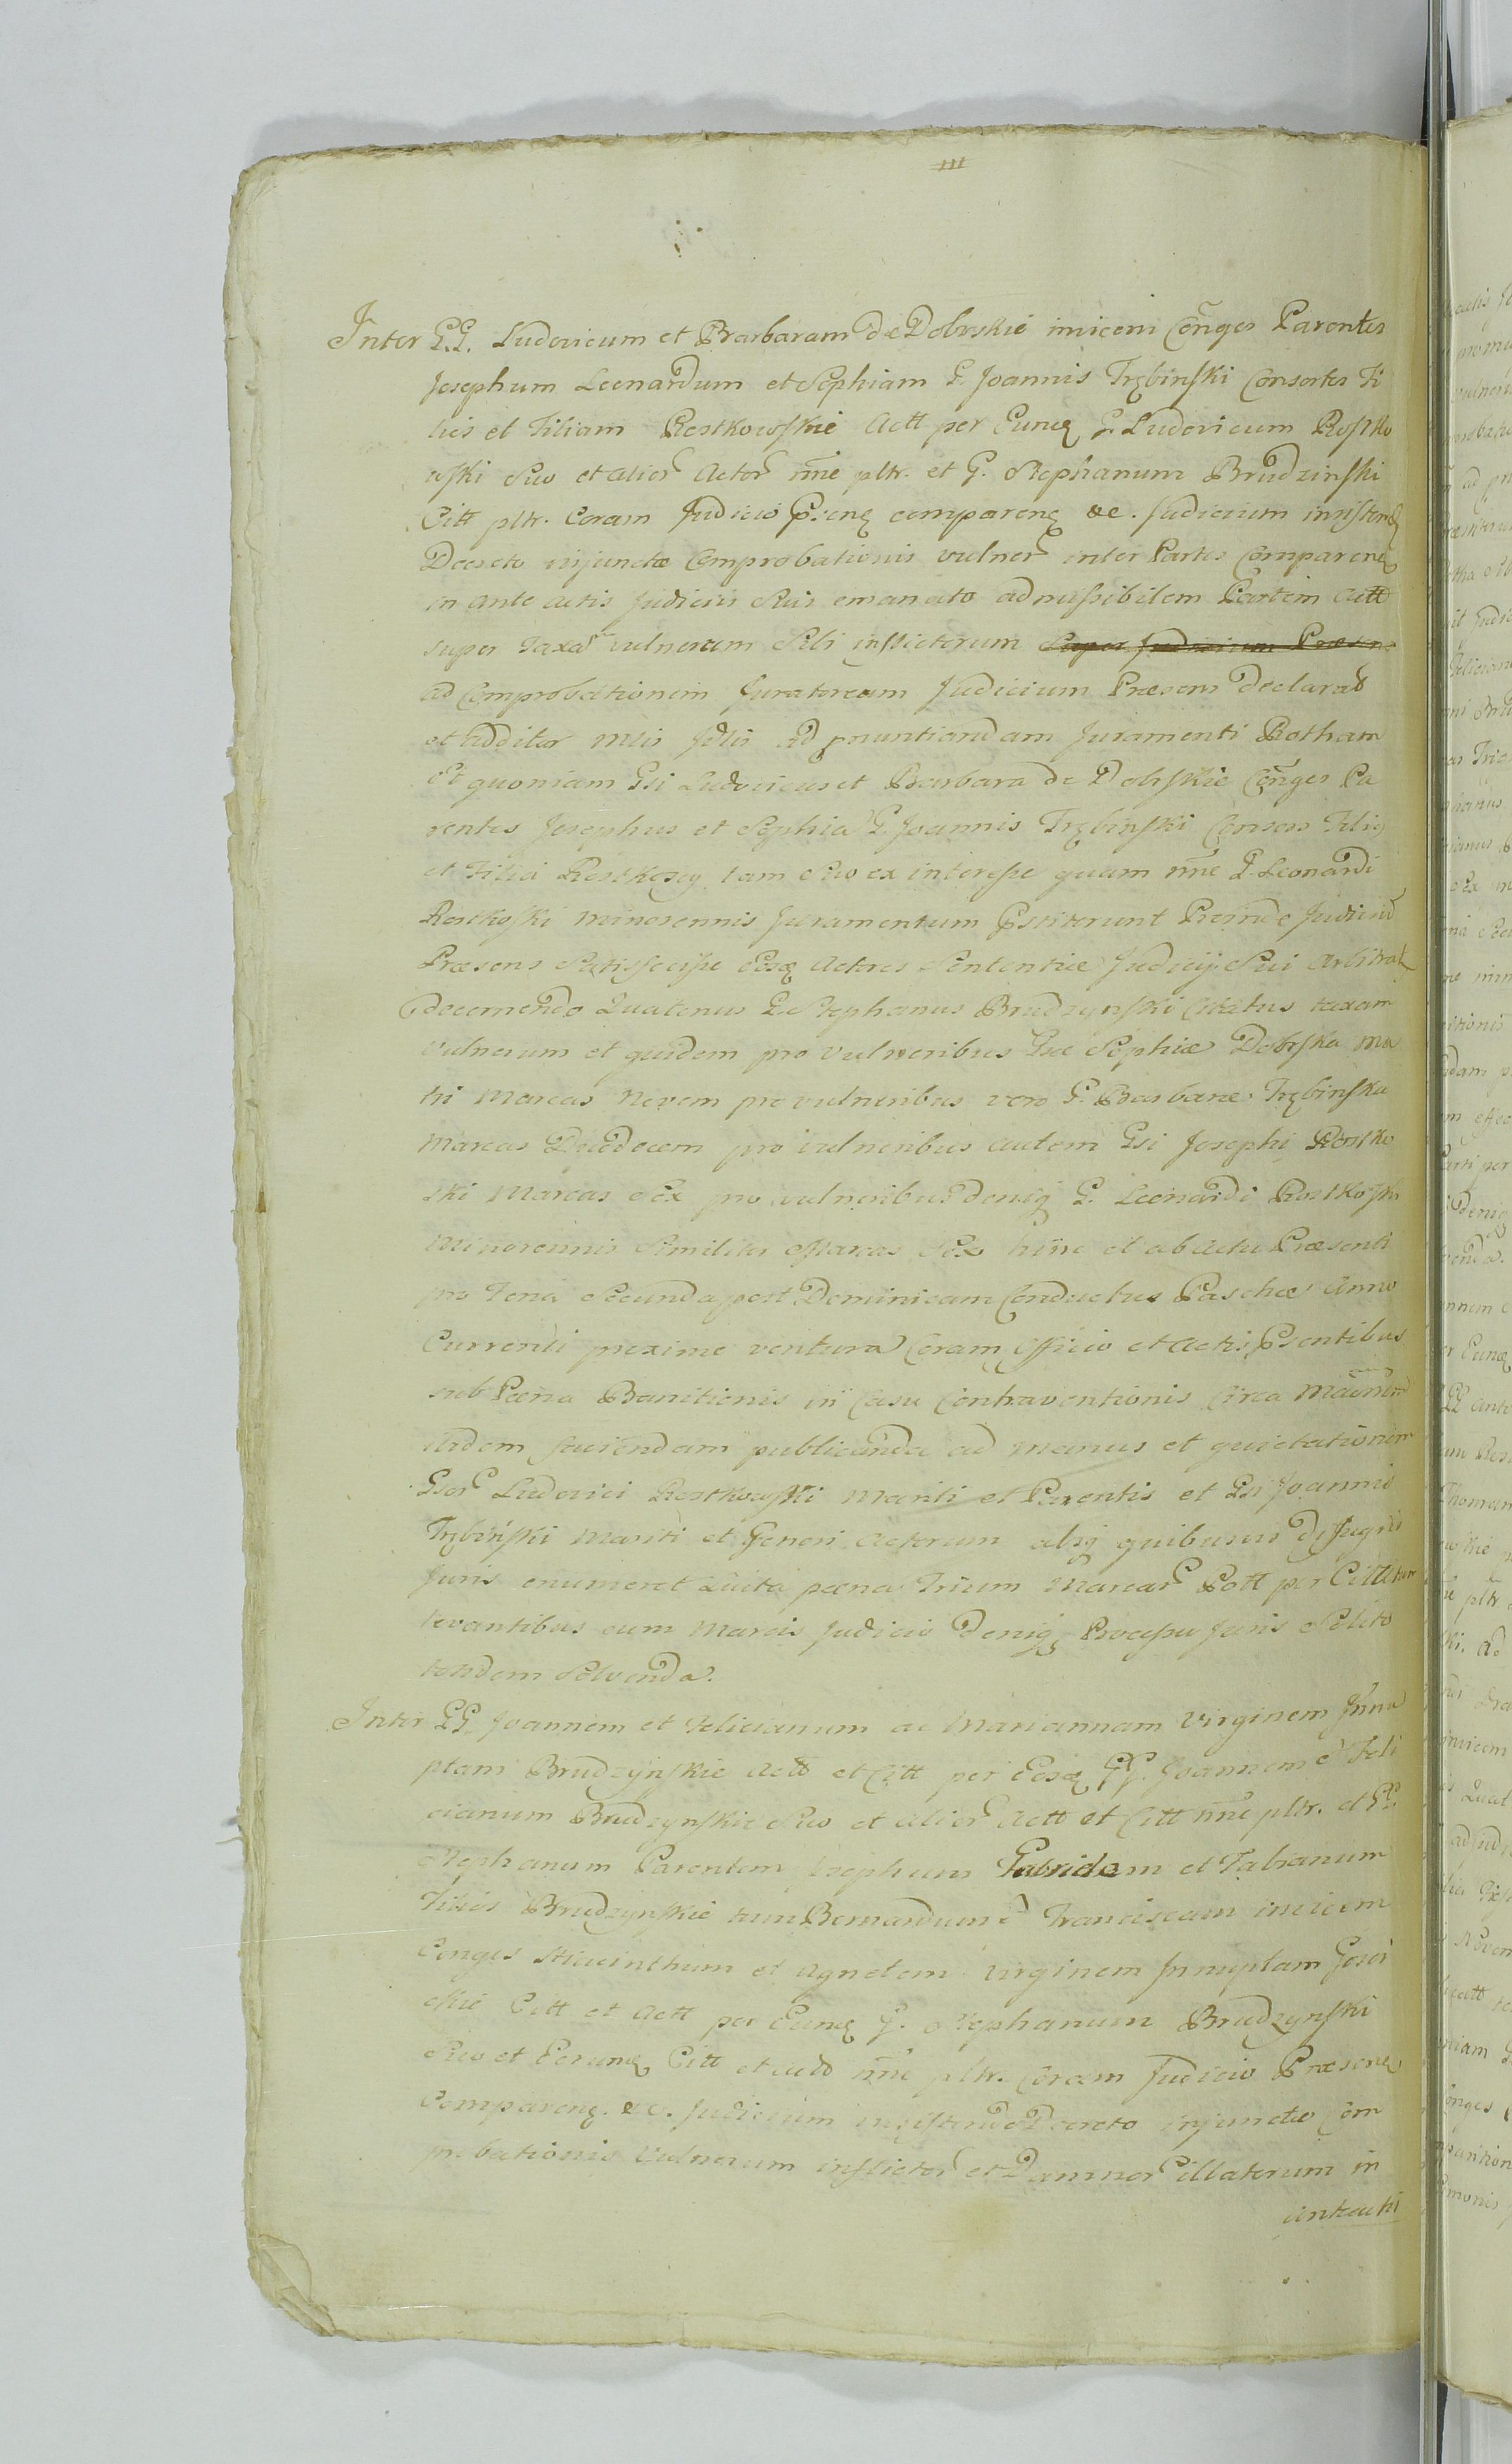 III
Inter GG. Ludovicum et Barbaram de Dobrskie invicem Cõnges Parentes
Josephum Leonardum et Sophiam G. Joannis Trębinski Consortes Fi
lios et Filiam Rostkowskie Actt per Eunq G. Ludovicum Rostko
wski Suo et alior Actor nñe pltr. et G. Stephanum Brudzinski
Citt pltr. Coram Judicio Psenq comparenq &c. Judicium insistendo
Decreto injunctæ Comprobationis vulner inter Partes Comparenq
in ante actis Judiciis Suis emanato admissibilem Partem Actt
super Taxa vulnerum Sibi inflictorum Super Judicium Præsen
ad Comprobationem Juratoream Judicium Præsens declarat
et additur Mlis Jdlis ad pnuntiandam Juramenti Rotham
Et quoniam Gsi Ludovicus et Barbara de Dobrskie Cõnges Pa
rentes Josephus et Sophia G. Joannis Trębinski Consors Filiq
et Filia Rostkoscy tam Suo ex interesse quam nñe G. Leonardi
Rostkoski Minorennis Juramentum Pstiterunt Proinde Judicium
Præsens Satisfecisse Eosq Actores Sententiæ Judicij Sui Arbitrat
decernendo Quatenus G. Stephanus Brudzynski Citatus taxam
vulnerum et quidem pro vulneribus Gsæ Sophiæ Dobrska Ma
tri Marcas Novem pro vulneribus vero G. Barbaræ Trębinska
Marcas Duodecem pro vulneribus autem Gsi Josephi Rostko
ski Marcas Sex pro vulneribus deniq G. Leonardi Rostkoski
Minorennis Similiter Marcas Sex hinc et ab Actu Præsenti
pro Feria Secunda post Dominicam Conductus Paschæ Anno
Currenti proxime ventura Coram Officio et Actis Psentibus
sub Pæna Banitionis in Casu Contraventionis Circa
ardem faciendam publicanda ad manus et quietationem
Gsor Ludovici Rostkowski Mariti et Parentis et Gsi Joannis
Trębinski Mariti et Generi Actorum absq quibusvis diffugiis
Juris enumeret Luita pæna Trium Marcar Pott per Cittatum
levantibus cum Marcis Judicio Deniq Processu Juris Solito
tandem Solvenda.
Inter GG. Joannem et Felicianum ac Mariannam Virginem Innu
ptam Brudzynskie Actt et Citt per Eosq GG. Joannem e Feli
cianum Brudzynskie Suo et alior Actt et Citt nñe pltr. et GG.
Stephanum Parentem Josephum Gabrielem et Fabianum
Filios Brudzynskie tum Bernardum e Franciscam invicem
Conges Hiacinthum et Agnetem Virginem Innuptam
skie Citt et Actt per Eunq G. Stephanum Brudzynski
Suo et Eorunq Citt et actt nñe pltr. Coram Judicio Præsenq
Comparenq. &c. Judicium insistendo Decreto injunctæ Com
probationis Vulnerum inflictor et Damnor illatorum in
anteacti